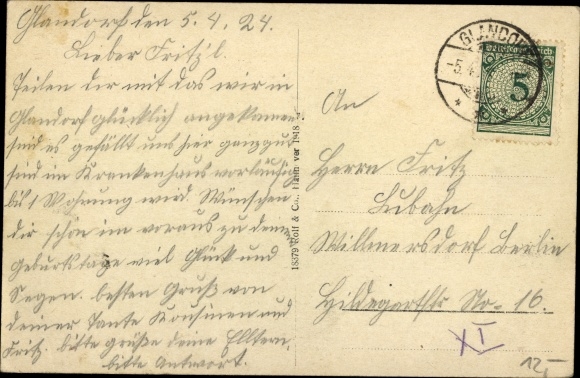 Glandorf den 5.4.24.
Lieber Fritz'l.
Teilen dir mit das wir in
Glandorf glücklich angekommen
sind es gefällt uns hier ganz gut
sind im Krankenhaus vorläufig
bis 1 Wohnung wird. Wünschen
dir schon im voraus zu dein
geburtstage viel Glück und
Segen. besten Gruß von
deiner Tante Kousinen und
Fritz. bitte grüße deine Elltern.
bitte Antwort.
18379 Rolf & Co., vor 1918
GLANDORF
5.4.
Deutsches Reich
5
An
Herrn Fritz
Lubahn
Willmersdorf Berlin
Hildegartstr No - 16.
XI
12,-